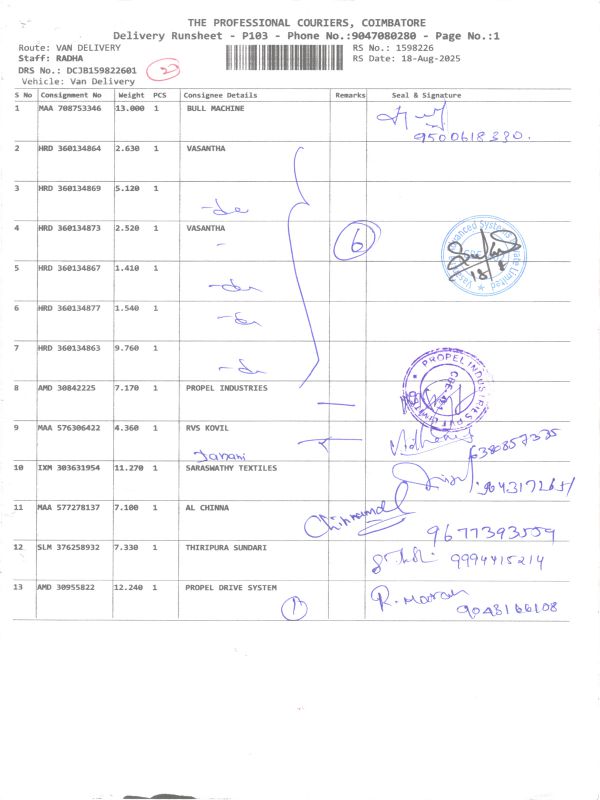 THE PROFESSIONAL COURIERS, COIMBATORE
Delivery Runsheet - P103 - Phone No.:9047080280 - Page No.:1
Route: VAN DELIVERY RS No.: 1598226
Staff: RADHA RS Date: 18-Aug-2025
DRS No.: DCJB159822601
Vehicle: Van Delivery
S No Consignment No Weight PCS Consignee Details Remarks Seal & Signature
1 MAA 708753346 13.000 1 BULL MACHINE
9500618330.
2 HRD 360134864 2.630 1 VASANTHA
3 HRD 360134869 5.120 1
-do
4 HRD 360134873 2.520 1 VASANTHA
6
18/8
5 HRD 360134867 1.410 1
-do
6 HRD 360134877 1.540 1
-do
7 HRD 360134863 9.760 1
-do
PROPEL INDUSTRIES PVT LIMITED
8 AMD 30842225 7.170 1 PROPEL INDUSTRIES
9 MAA 576306422 4.360 1 RVS KOVIL
Janani
10 IXM 303631954 11.270 1 SARASWATHY TEXTILES
11 MAA 577278137 7.100 1 AL CHINNA
9677393559
12 SLM 376258932 7.330 1 THIRIPURA SUNDARI
9994415214
13 AMD 30955822 12.240 1 PROPEL DRIVE SYSTEM
1 R. Maran
9043166108